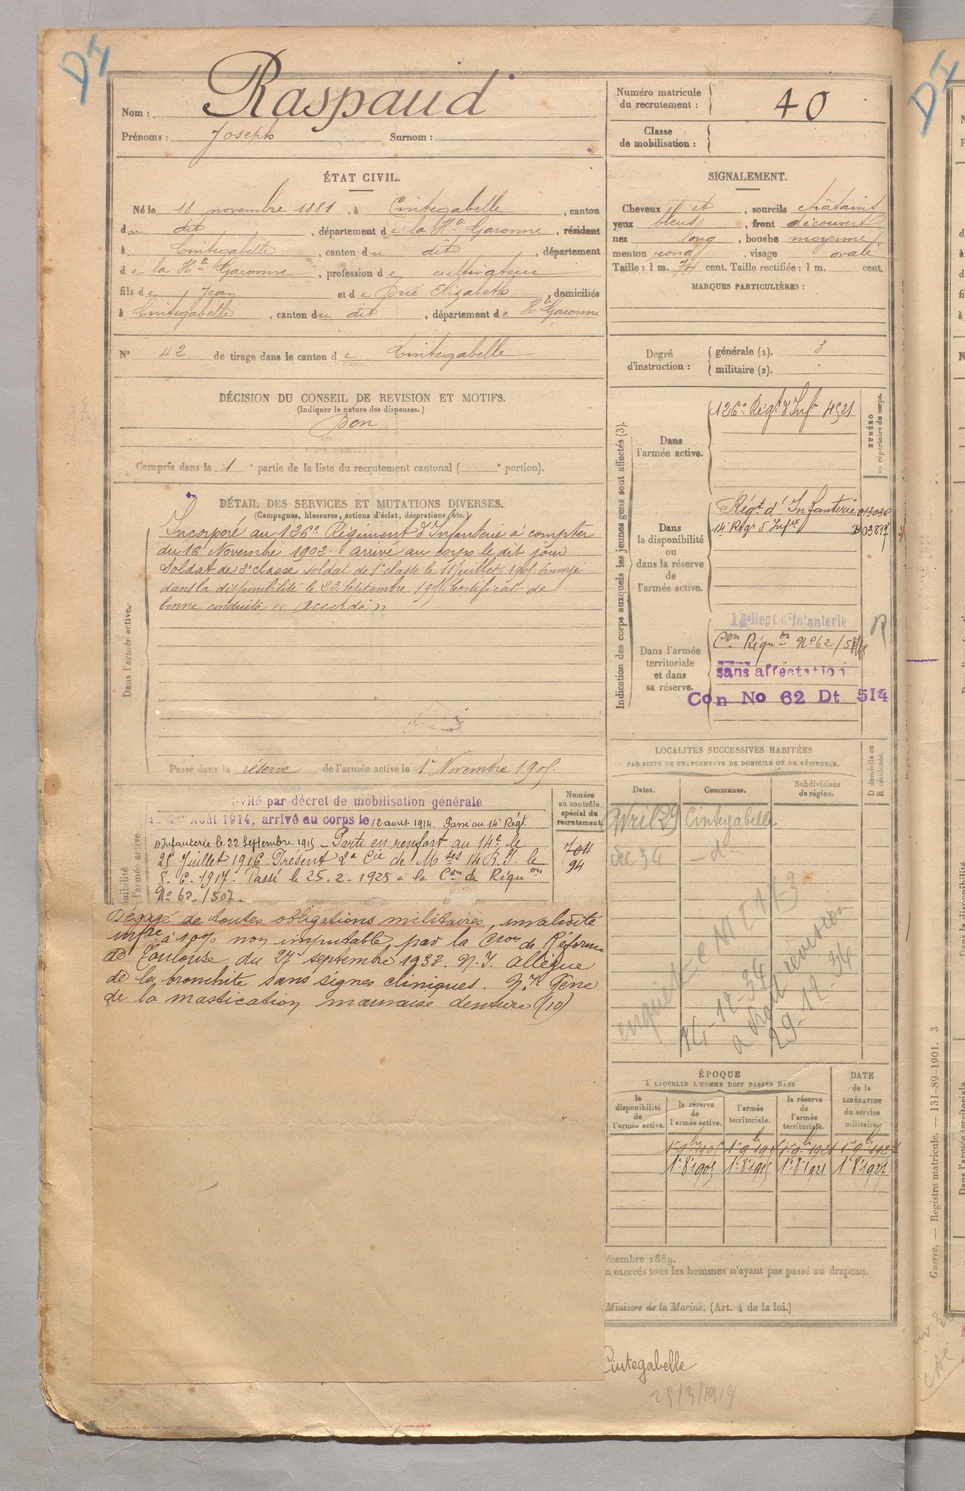 DI
Nom : Raspaud
Prénoms : Joseph Surnom :
ÉTAT CIVIL.
Né le 18 novembre 1881, à Cintegabelle, canton
du dit, département de la Hte Garonne, résidant
à Cintegabelle, canton du dit, département
de la Hte Garonne, profession de cultivateur
fils de Jean et de Elizabeth, domiciliés
à Cintegabelle, canton du dit, département de Hte Garonne
N° 42 de tirage dans le canton de Cintegabelle
DÉCISION DU CONSEIL DE REVISION ET MOTIFS.
(Indiquer la nature des dispenses.)
Bon
Compris dans la 1e partie de la liste du recrutement cantonal ( e portion).
DÉTAIL DES SERVICES ET MUTATIONS DIVERSES.
(Campagnes, blessures, actions d'éclat, décorations, etc.)
Dans l'armée active.
Incorporé au 126e Régiment d'Infanterie à compter
du 16 Novembre 1902. arrivé au corps le dit jour
Soldat de 2e classe. soldat de 1e classe le 11 juillet 1905. Envoyé
dans la disponibilité le 23 Septembre 1905. Certificat de
bonne conduite "accordé"
Passé dans la réserve de l'armée active le 1er Novembre 1905.
par décret de mobilisation générale
Août 1914, arrivé au corps le 12 aout 1914. Passé au 14e Régt
d'Infanterie le 22 Septembre 1915 – Parti en renfort au 14e le
25 Juillet 1916. Présent 2e Cie de Mses 14 R.I. le
8.6.1917. Passé le 25.2.1925 à la Con de Réquon
No 62/502
Numéro
au contrôle
spécial du
recrutement
704
94
Dégagé de toutes obligations militaires, invalidité
infre à 10% non imputable, par la Cion de Réforme
de Toulouse du 27 septembre 1932. N.I. Allègue
de la bronchite sans signes cliniques. Gène
de la mastication mauvaise denture (10)
Numéro matricule
du recrutement : 40
Classe
de mobilisation :
SIGNALEMENT.
Cheveux et, sourcils châtains
yeux bleus, front découvert
nez long, bouche moyenne
menton rond, visage ovale
Taille : 1 m. 74 cent. Taille rectifiée : 1 m. cent.
MARQUES PARTICULIÈRES :
Degré
d'instruction :
générale (1). 3
militaire (2).
Indication des corps auxquels les jeunes gens sont affectés (3).
NUMÉRO
au répertoire du corps.
Dans
l'armée active.
126e Régt d'Infie 4521
Dans
la disponibilité
ou
dans la réserve
de
l'armée active.
Régt d'Infanterie
14e Régt d'Infie
Dans l'armée
territoriale
et dans
sa réserve.
Regt d'Infanterie
Con Réquon No 62/
sans affectation
Con No 62 Dt 514
LOCALITÉS SUCCESSIVES HABITÉES
PAR SUITE DE CHANGEMENTS DE DOMICILE OU DE RÉSIDENCE.
Dates. Communes. Subdivisions
de région.
D domicile ou
R résidence.
Avril 29 Cintegabelle
dec 34 – do –
enquête
14-12-34
révision
29-12-34
ÉPOQUE
À LAQUELLE L'HOMME DOIT PASSER DANS
la
disponibilité
de
l'armée active.
la réserve
de
l'armée active.
l'armée
territoriale.
la réserve
de
l'armée
territoriale.
DATE
de la
LIBÉRATION
du service
militaire.
1er 9b 1905 1er 9b 1915 1er 9b 1921 1er 9b 1927
1er 8b 1905 1er 8b 1915 1er 8b 1921 1er 8b 1927
écembre 1889.
exercés tous les hommes n'ayant pas passé au drapeau.
Ministre de la Marine. (Art. 4 de la loi.)
Cintegabelle
28/3/1919
DI
Guerre. — Registre matricule. — 131-89-1901. 3